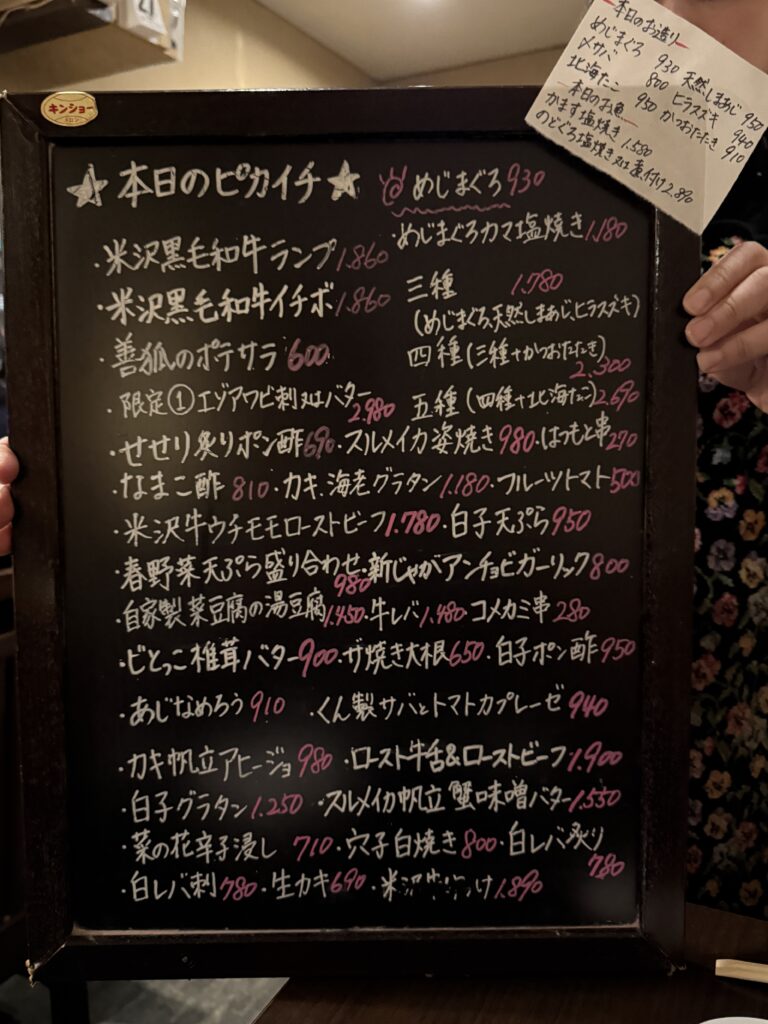 キンショー
21
本日のお造り
めじまぐろ 930 天然しまあじ 950
〆サバ 800 ヒラスズキ 940
北海たこ 950 かつおたたき 910
本日のお魚
かます塩焼き 1.580
のどぐろ塩焼き又は煮付け 2.890
☆本日のピカイチ☆
めじまぐろ 930
めじまぐろカマ塩焼き 1.180
・米沢黒毛和牛ランプ 1.860
・米沢黒毛和牛イチボ 1.860
三種 1.780
(めじまぐろ、天然しまあじ、ヒラスズキ)
・善狐のポテサラ 600
四種(三種+かつおたたき) 2.300
・限定①エゾアワビ刺又はバター 2.980
五種(四種+北海たこ) 2.690
・せせり炙りポン酢 690 ・スルメイカ姿焼き 980 ・はつもと串 270
・なまこ酢 810 ・カキ、海老グラタン 1.180 ・フルーツトマト 500
・米沢牛ウチモモローストビーフ 1.780 ・白子天ぷら 950
・春野菜天ぷら盛り合わせ 980 ・新じゃがアンチョビガーリック 800
・自家製菜豆腐の湯豆腐 1.450 ・牛レバ 1.480 コメカミ串 280
・じとっこ椎茸バター 900 ・ザ焼き大根 650 ・白子ポン酢 950
・あじなめろう 910 ・くん製サバとトマトカプレーゼ 940
・カキ帆立アヒージョ 980 ・ロースト牛舌&ローストビーフ 1.900
・白子グラタン 1.250 ・スルメイカ帆立蟹味噌バター 1.550
・菜の花辛子浸し 710 ・穴子白焼き 800 ・白レバ炙り 780
・白レバ刺 780 ・生カキ 690 ・米沢 け 1.890